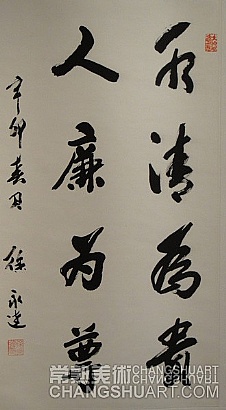 水清為貴
人廉为尊
辛卯春月
徐永
常熟美術 CHANGSHUART
CHANGSHUART.COM